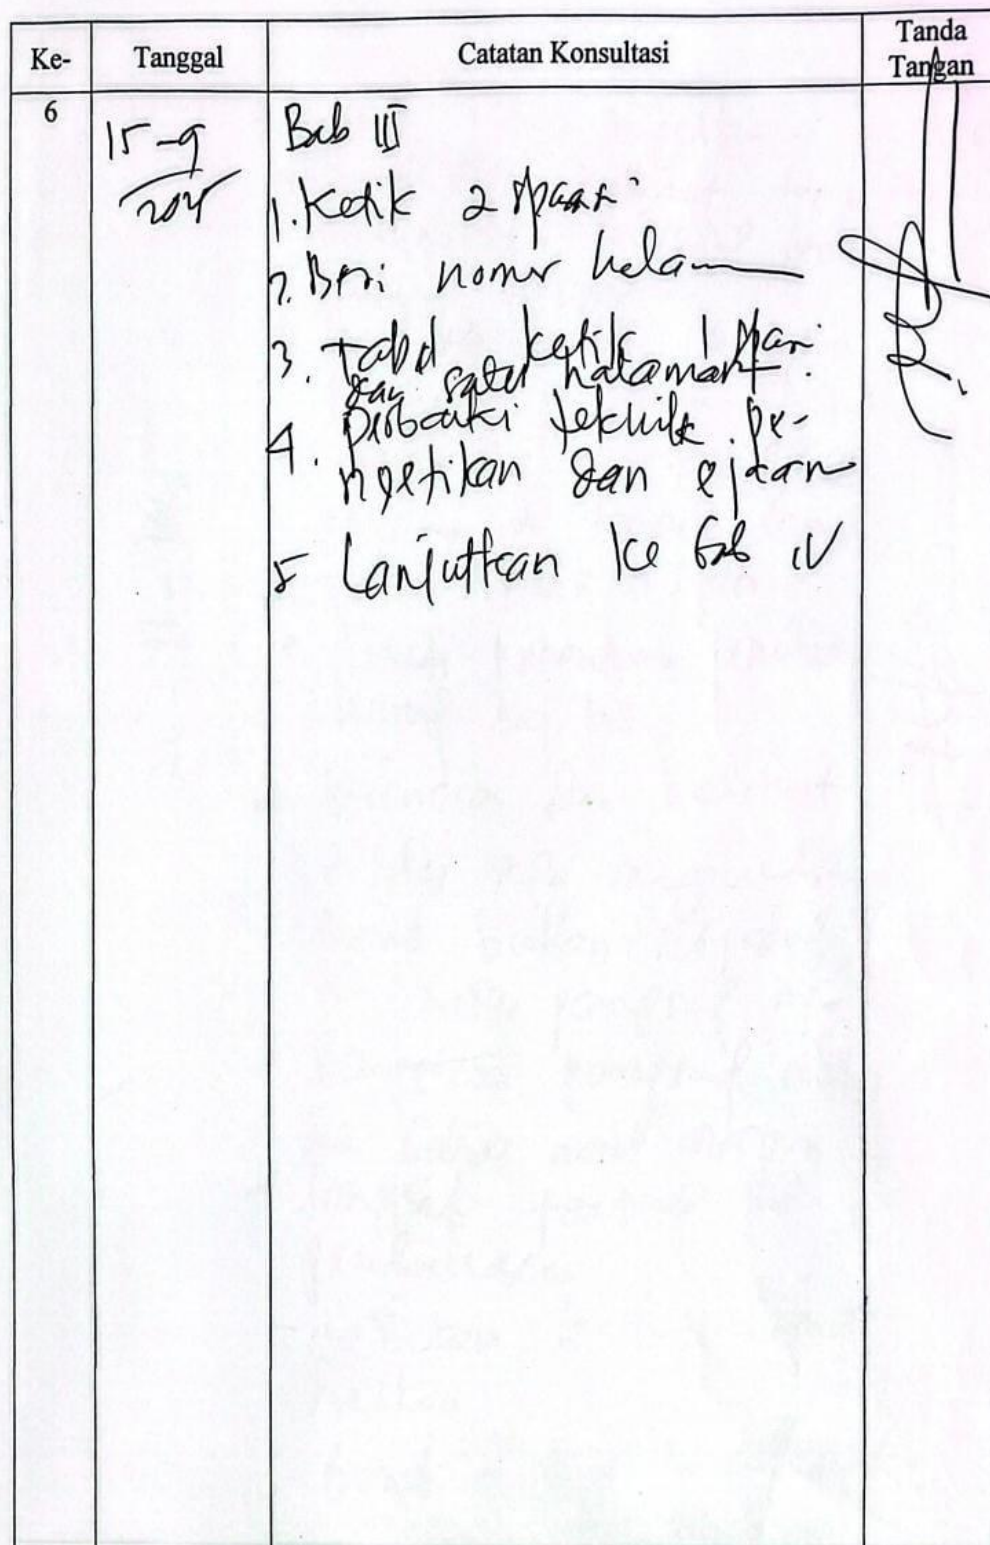 Ke- Tanggal Catatan Konsultasi Tanda Tangan
6 15-9 Bab III
1. Ketik 2 spasi
2. Beri nomor
3. Tabel ketik 1 spasi
dan satu halaman.
4. Perbaiki teknik pe-
ngetikan dan ejaan
5 Lanjutkan ke Bab IV